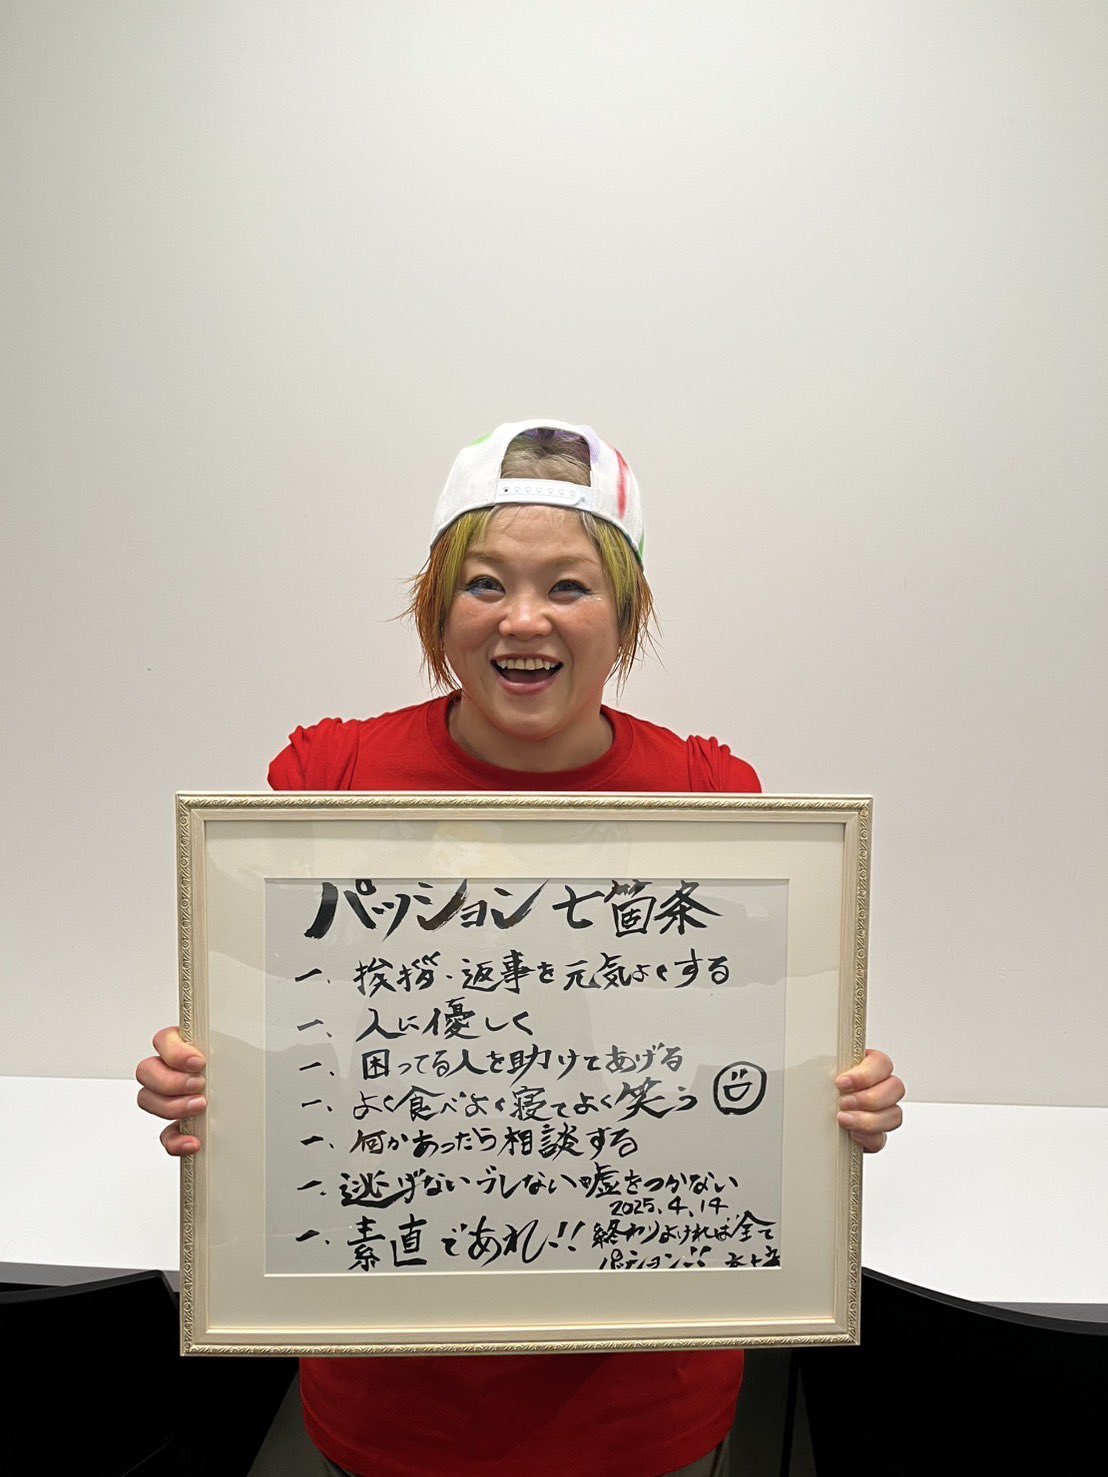 パッション七箇条
一、挨拶・返事を元気よくする
一、人に優しく
一、困ってる人を助けてあげる
一、よく食べよく寝てよく笑う
一、何かあったら相談する
一、逃げないブレない嘘をつかない
2025.4.14
一、素直であれ!!
終わりよければ全て
パッション!!